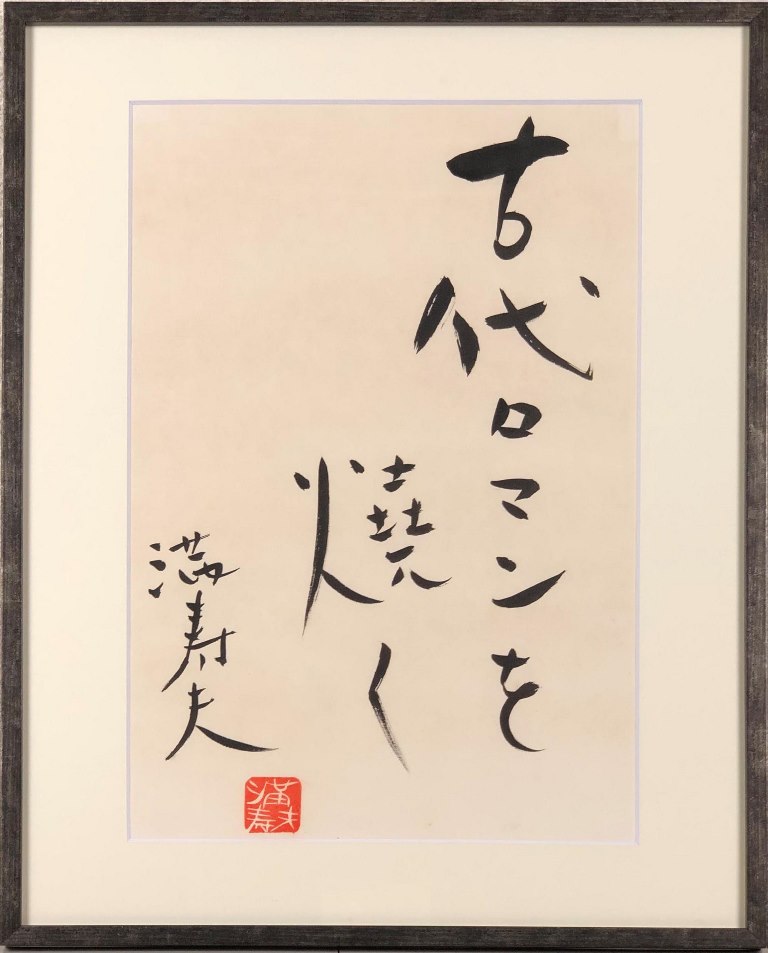 古代ロマンを
燒く
満寿夫
満寿夫